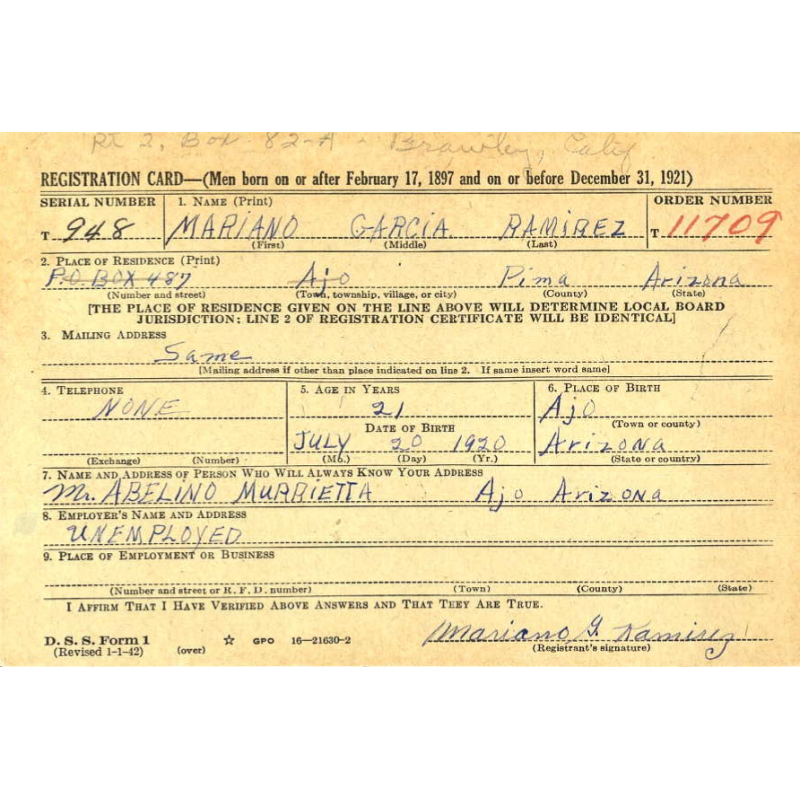 Rt 2, Box 82-A - Brawley, Calif
REGISTRATION CARD—(Men born on or after February 17, 1897 and on or before December 31, 1921)
SERIAL NUMBER 1. NAME (Print) ORDER NUMBER
T 948 MARIANO GARCIA RAMIREZ T 11709
(First) (Middle) (Last)
2. PLACE OF RESIDENCE (Print)
P.O BOX 487 Ajo Pima Arizona
(Number and street) (Town, township, village, or city) (County) (State)
[THE PLACE OF RESIDENCE GIVEN ON THE LINE ABOVE WILL DETERMINE LOCAL BOARD
JURISDICTION; LINE 2 OF REGISTRATION CERTIFICATE WILL BE IDENTICAL]
3. MAILING ADDRESS
Same
[Mailing address if other than place indicated on line 2. If same insert word same]
4. TELEPHONE 5. AGE IN YEARS 6. PLACE OF BIRTH
NONE 21 Ajo
(Town or county)
DATE OF BIRTH
JULY 20 1920 Arizona
(Exchange) (Number) (Mo.) (Day) (Yr.) (State or country)
7. NAME AND ADDRESS OF PERSON WHO WILL ALWAYS KNOW YOUR ADDRESS
Mr. ABELINO MURRIETTA Ajo Arizona
8. EMPLOYER'S NAME AND ADDRESS
UNEMPLOYED
9. PLACE OF EMPLOYMENT OR BUSINESS
(Number and street or R. F. D. number) (Town) (County) (State)
I AFFIRM THAT I HAVE VERIFIED ABOVE ANSWERS AND THAT THEY ARE TRUE.
D. S. S. Form 1 ☆ GPO 16—21630-2 Mariano G. Ramirez
(Revised 1-1-42) (over) (Registrant's signature)